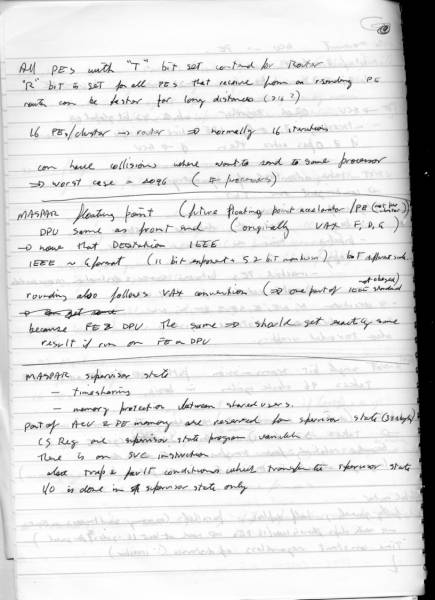 All PEs with "T" bit set contend for Router
"R" bit is set for all PEs that receive from a sending PE
router can be faster for long distances (>16?)
16 PEs/cluster → router ⇒ normally 16 iterations
can have collisions where want to send to same processor
⇒ worst case = 4096 (# processors)
MASPAR floating point (future floating point accelerator /PE
DPU same as front end (originally VAX F, D, G)
→ now that DECstation IEEE
IEEE ~ G format (11 bit exponent + 52 bit mantissa) but different
rounding also follows VAX convention (⇒ one part of IEEE standard not obeyed)
because FE & DPU the same ⇒ should get exactly same
result if run on FE or DPU
MASPAR supervisor state
- timesharing
- memory protection between shared users.
Part of ACU & PE memory are reserved for supervisor state
CS Reg are supervisor state program variable
There is an SVC instruction
also trap & fault conditions which transfer to supervisor state
I/O is done in supervisor state only